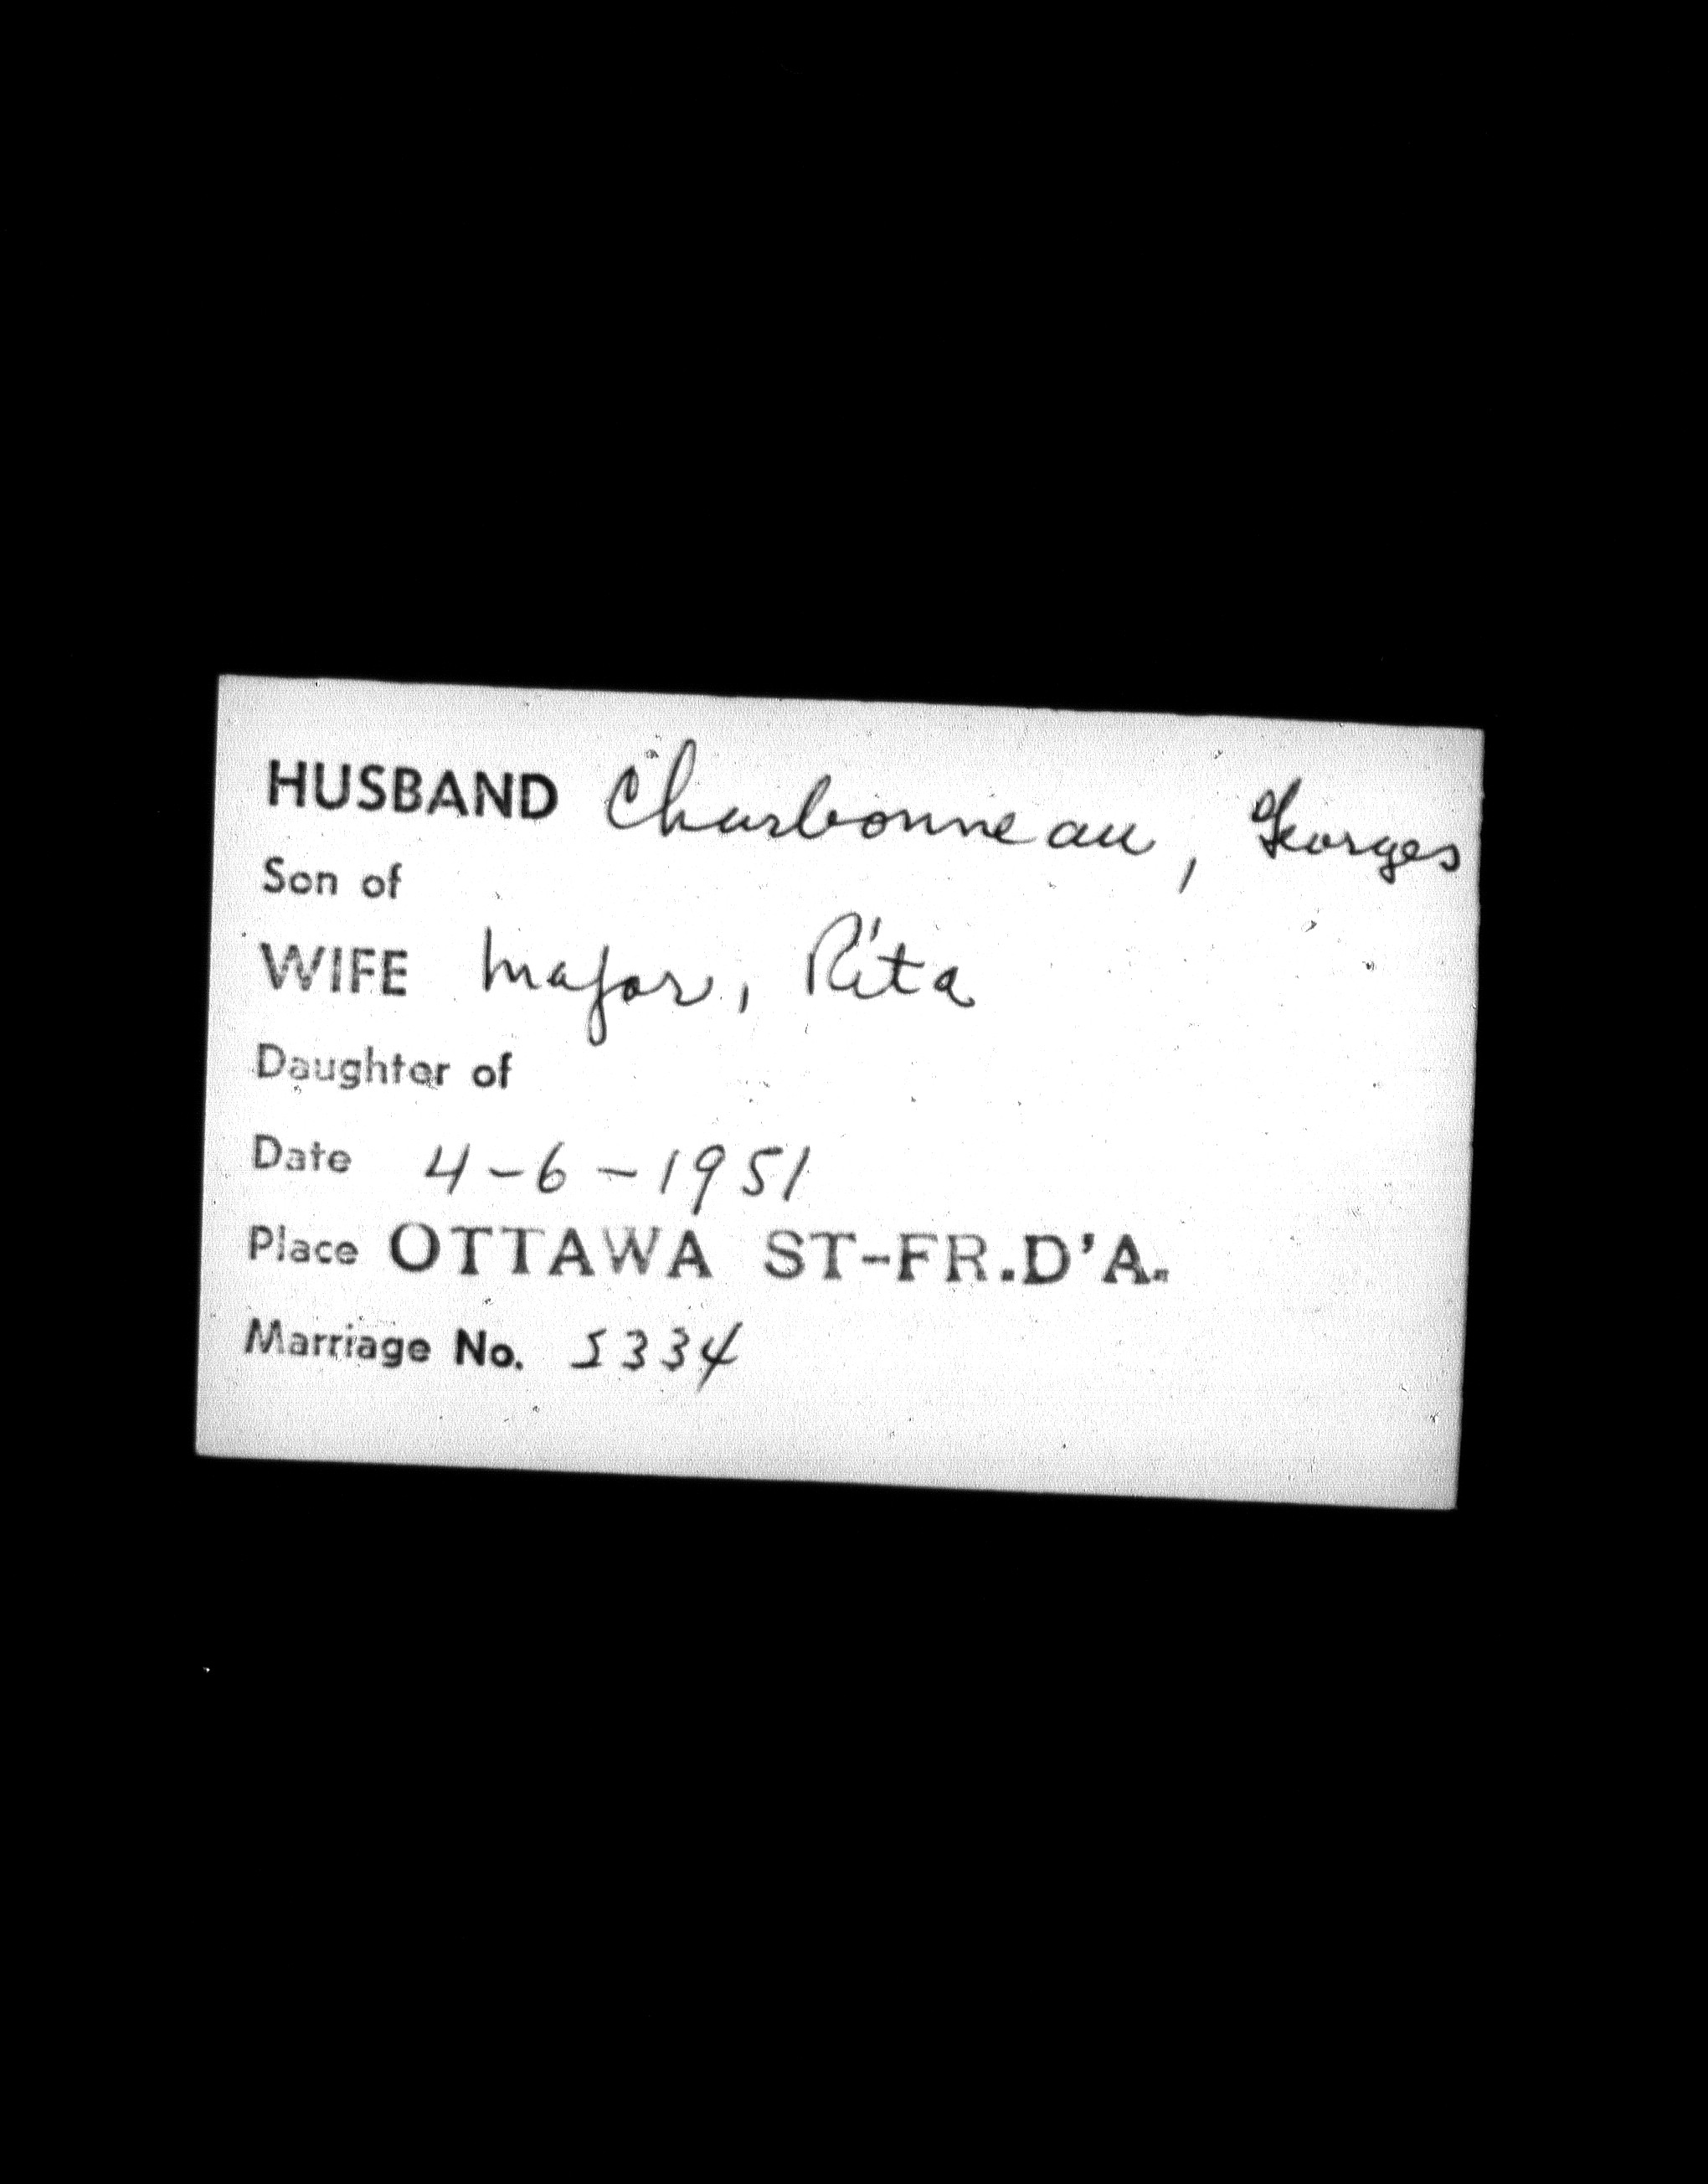 HUSBAND Charbonneau, Georges
Son of
WIFE Major, Rita
Daughter of
Date 4-6-1951
Place OTTAWA ST-FR.D'A.
Marriage No. 5334